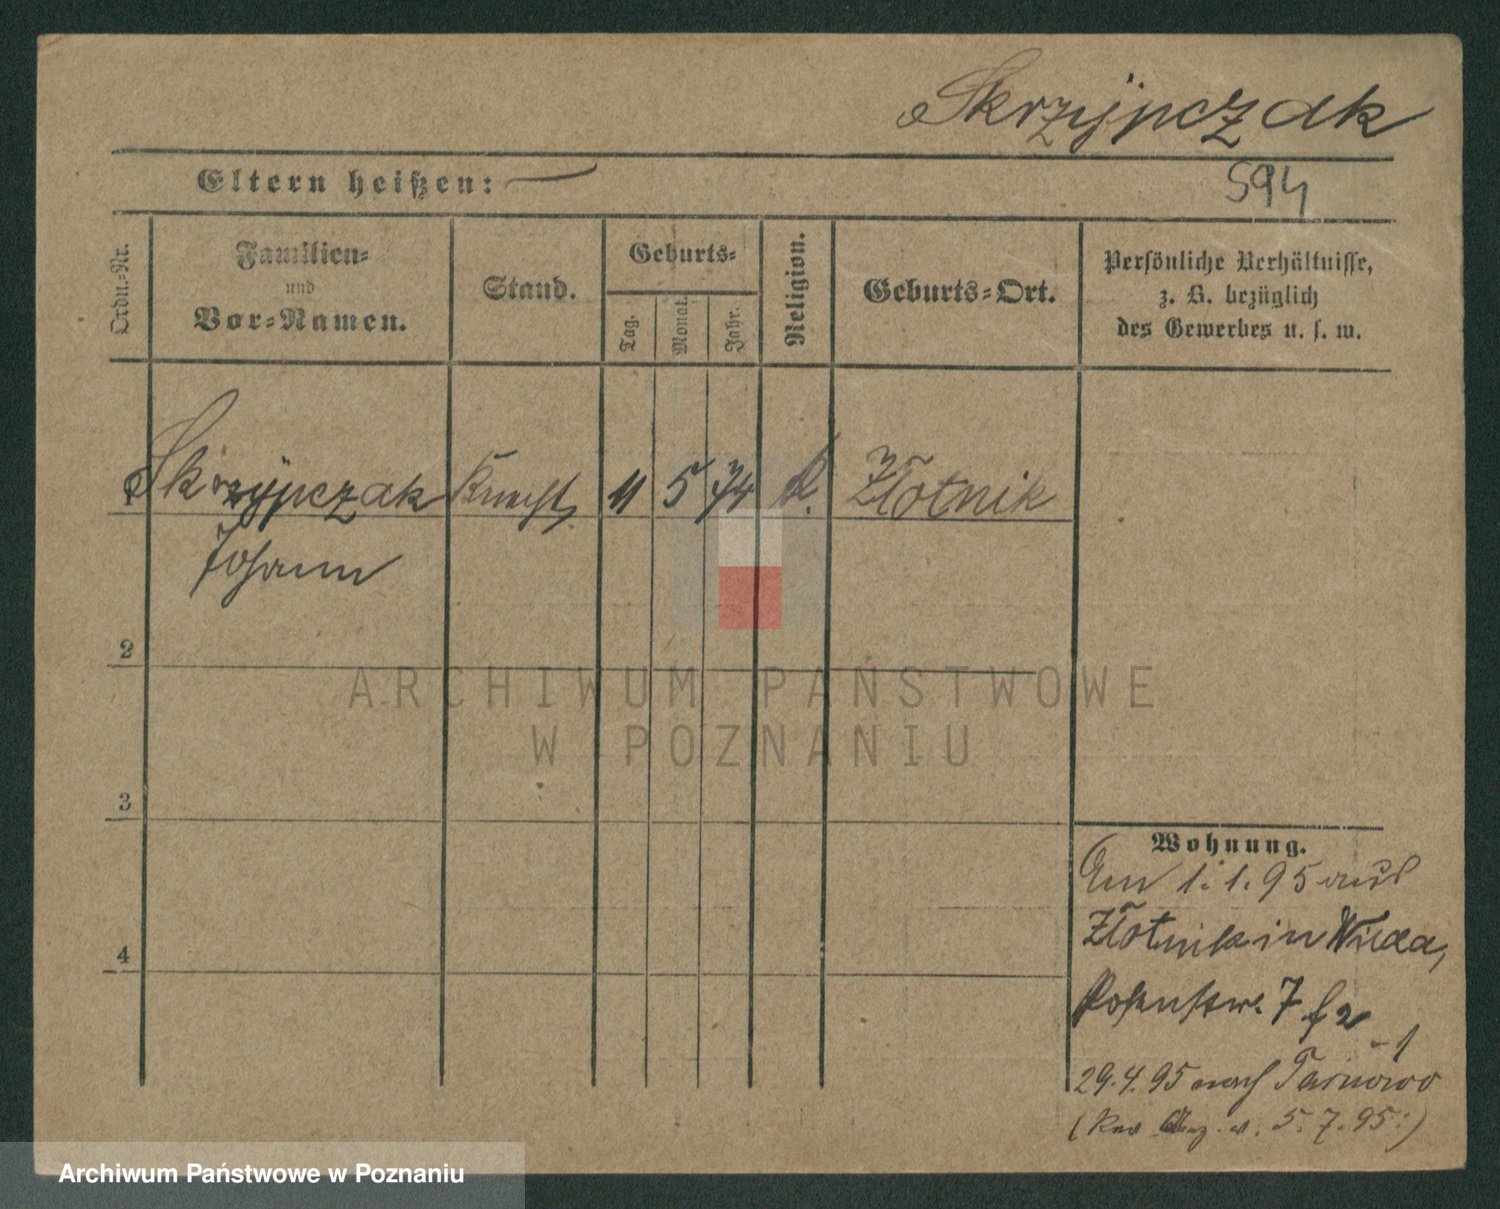 Skrzypczak
Eltern heißen: —
594
Ordn.-Nr.
Familien-
und
Vor-Namen.
Stand.
Geburts-
Tag.
Monat.
Jahr.
Religion.
Geburts-Ort.
Persönliche Verhältnisse,
z. B. bezüglich
des Gewerbes u. s. w.
1 Skrzypczak Knecht 11 5 74 k. Złotnik
Johann
2
3
4
Wohnung.
Am 1.1.95 aus
Złotnik in Wilda,
7
29.4.95 nach Tarnowo
5.7.95.)
ARCHIWUM PAŃSTWOWE
W POZNANIU
Archiwum Państwowe w Poznaniu